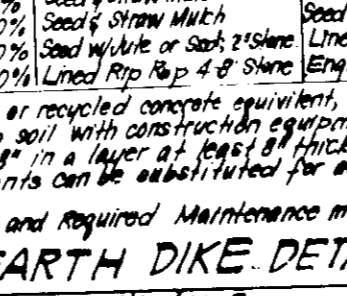 % Seed & Straw Mulch
0% Seed & Straw Mulch Seed
0% Seed w/Jute or Sod; 2" Stone Line
0% Lined Rip Rap 4-8" Stone Eng
or recycled concrete equivilent,
soil with construction equipm
8" in a layer at least 8" thick
nts can be substituted for a
and Required Maintenance m
EARTH DIKE DETA